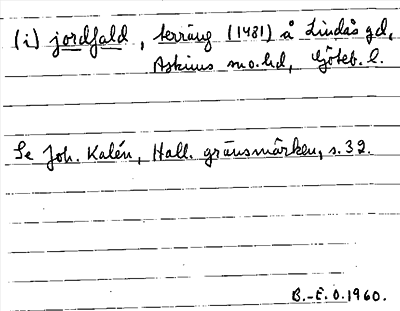 (i) jordfald, terräng (1481) å Lindås gd,
Askims sn o. hd, Göteb. l.
Se Joh. Kalén, Hall. gränsmärken, s. 32.
B.-E. O. 1960.